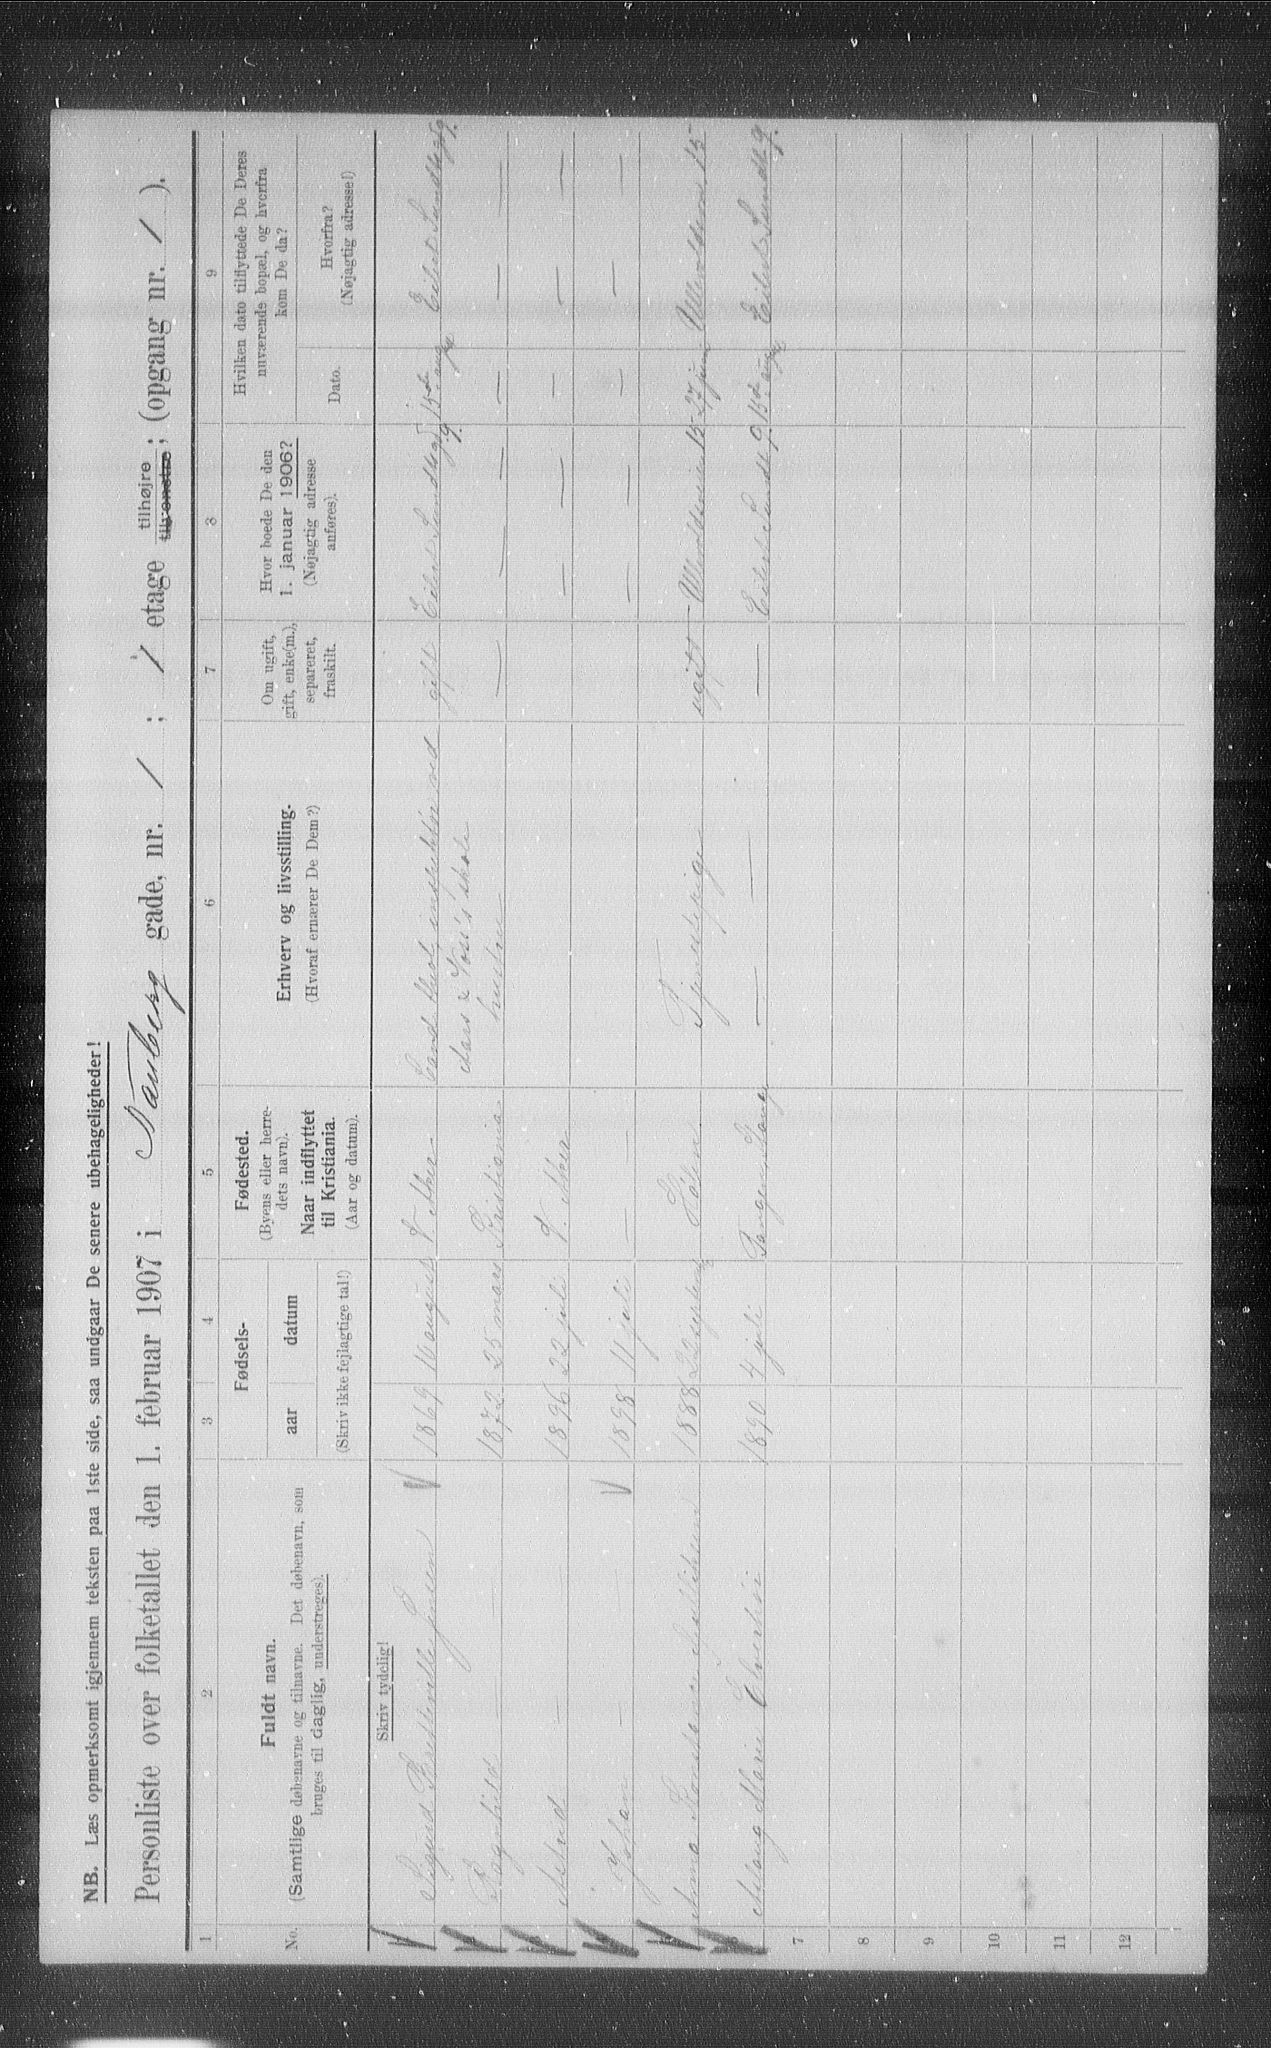 NB. Læs opmerksomt igjennem teksten paa 1ste side, saa undgaar De senere ubehageligheder!
Personliste over folketallet den 1. februar 1907 i Tauberg gade, nr. 1 ; 1 etage tilhøjre tilvenstre ; (opgang nr. 1 ).
1 2 3 4 5 6 7 8 9
No.
Fuldt navn.
(Samtlige døbenavne og tilnavne. Det døbenavn, som
bruges til daglig, understreges).
Fødsels-
aar datum
(Skriv ikke fejlagtige tal!)
Fødested.
(Byens eller herre-
dets navn).
Naar indflyttet
til Kristiania.
(Aar og datum).
Erhverv og livsstilling.
(Hvoraf ernærer De Dem?)
Om ugift,
gift, enke(m.),
separeret,
fraskilt.
Hvor boede De den
1. januar 1906?
(Nøjagtig adresse
anføres).
Hvilken dato tilflyttede De Deres
nuværende bopæl, og hvorfra
kom De da?
Dato.
Hvorfra?
(Nøjagtig adresse!)
Skriv tydelig!
Sigurd Jensen 1869 16 august V. Aker Cand. theol, ved gift Eilert Sundtsgd 9. 15de aug Eilert Sundtsgd 9.
Aars & Voss's skole
Ragnhild — 1872 25 mars Kristiania hustru — — — — — —
Astrid — — 1896 22 juli V. Aker — — — — —
Johan — — 1898 11 juli — — — — — — —
Anna 1888 Tjenestepige ugift Ullevoldsveien 15 27 juni Ullevoldsveien 15
Marie 1890 4 juli — — — Eilert Sundt 9. 15de aug Eilert Sundt 9.
7
8
9
10
11
12